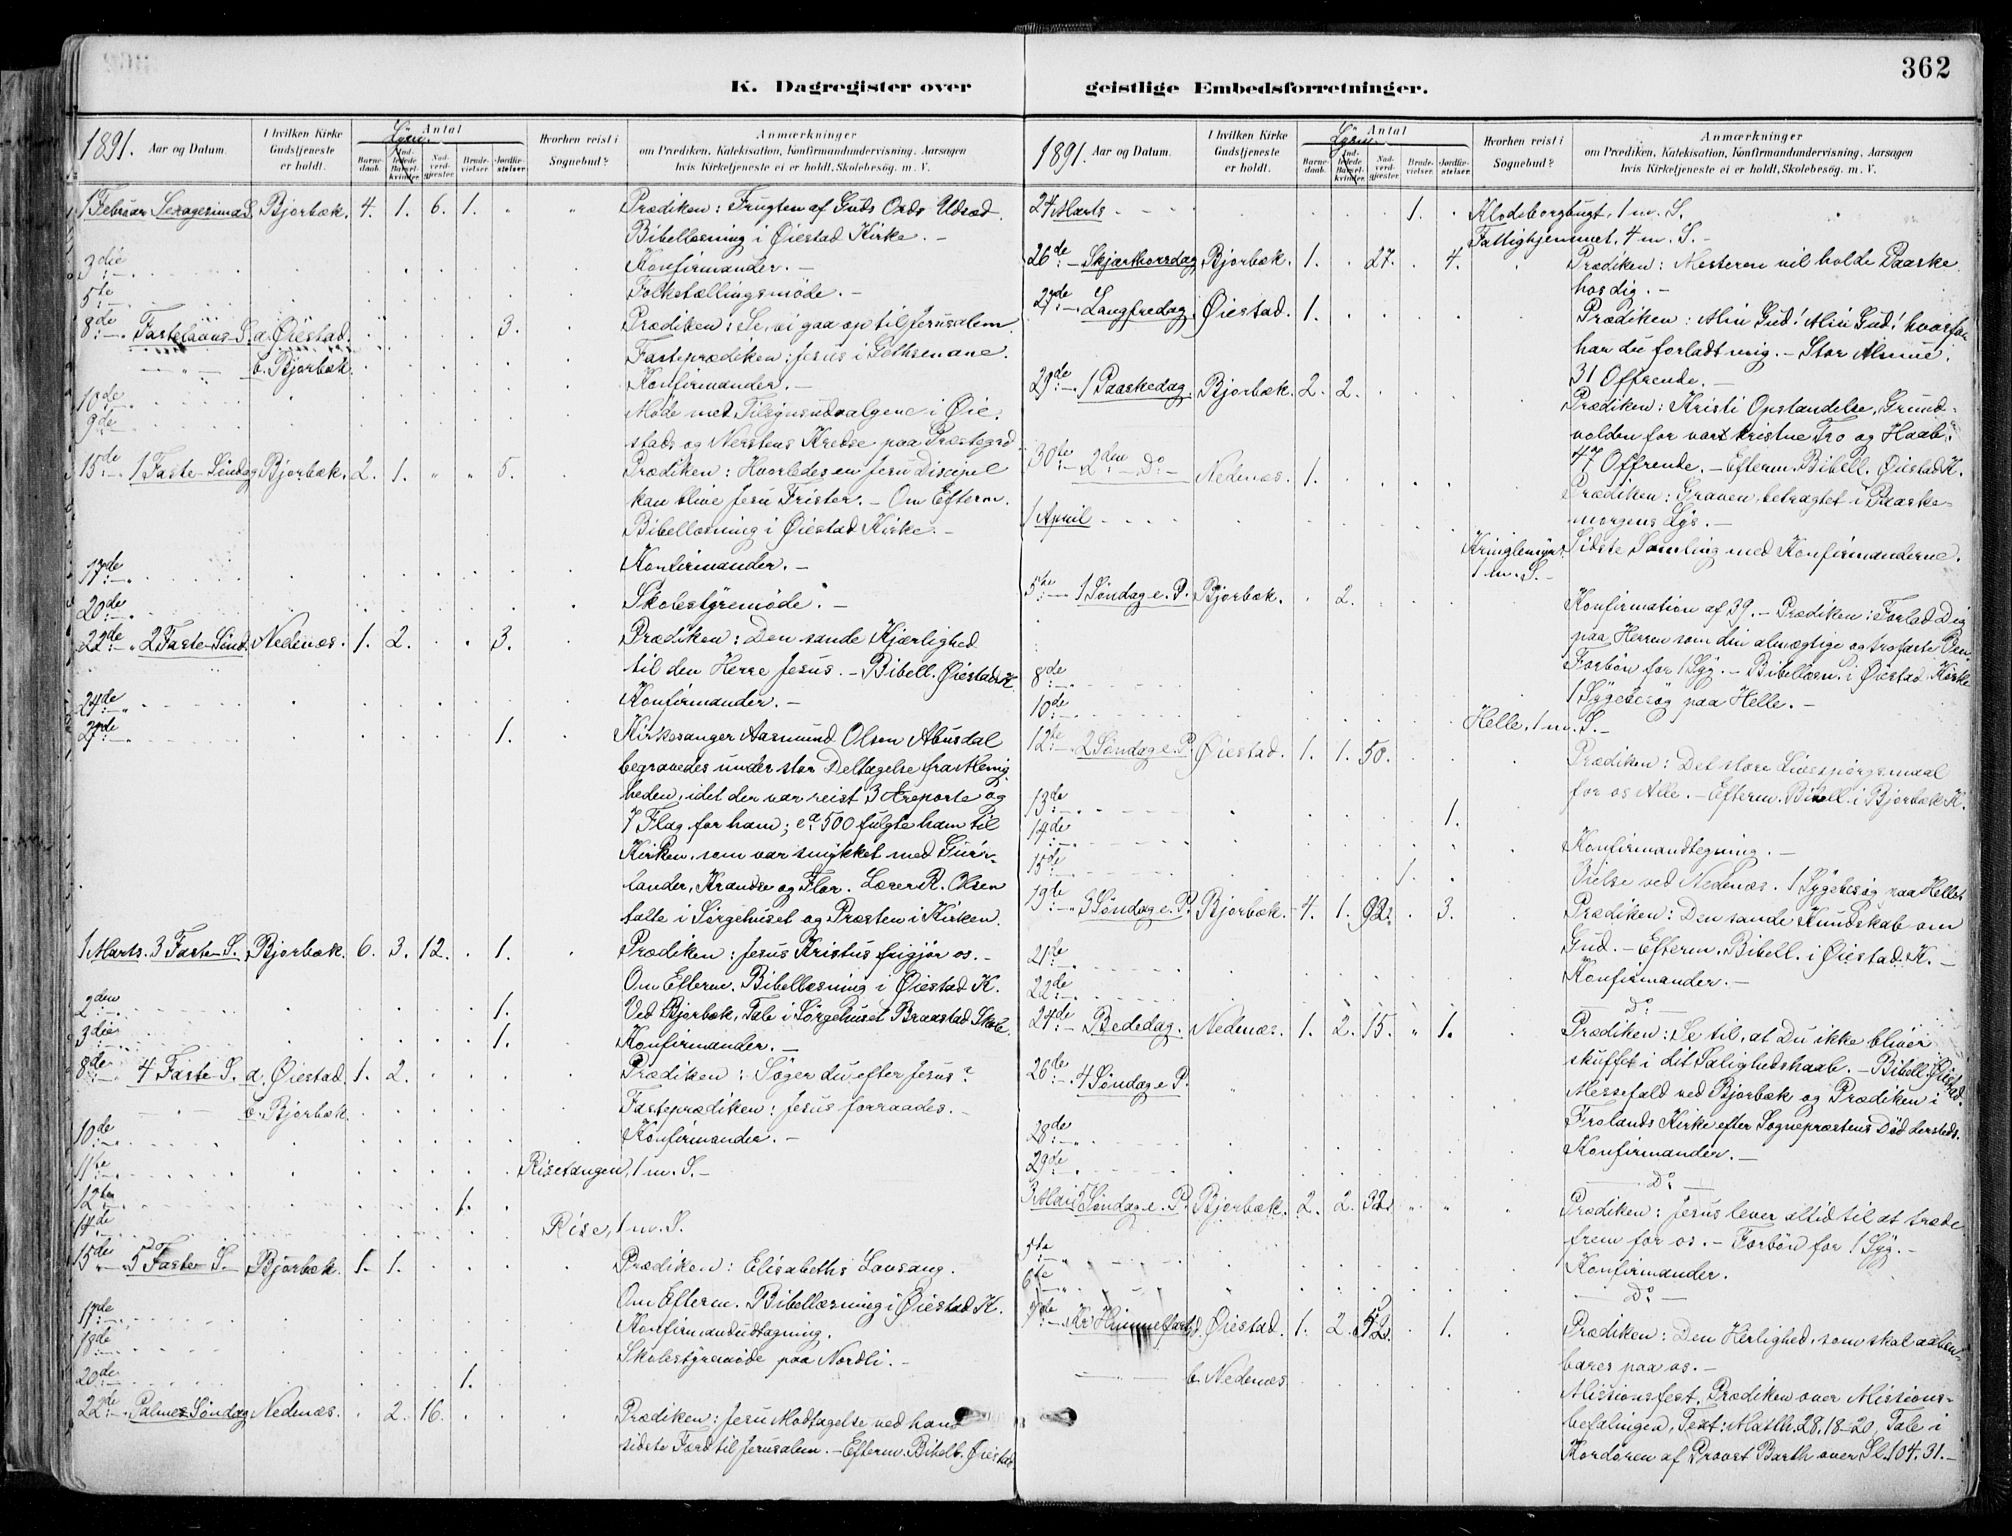 362
K. Dagregister over
geistlige Embedsforretninger.
1891. Aar og Datum.
I hvilken Kirke Gudstjeneste er holdt.
Antal
Barne-daab.
Ind-ledede Barsel-kvinder.
Nad-verd-gjæster.
Brude-vielser.
Jordfæ-stelser.
Hvorhen reist i Sognebud?
Anmærkninger
om Prædiken, Katekisation, Konfirmandundervisning. Aarsagen
hvis Kirketjeneste ei er holdt, Skolebesøg. m. V.
1 Februar Sexagesima S. Bjorbæk. 4. 1. 6. 1. " " Prædiken: Frugten af Guds Ords Udsæd.
Bibellæsning i Øiestad Kirke. -
3die Konfirmander. -
5te Folketællingsmøde. -
8de Fastelavns-S. a. Øiestad. 3. Prædiken: Se, vi gaa op til Jerusalem.
b. Bjorbæk. Fasteprædiken: Jesus i Gethsemane.
10de Konfirmander. -
9de Møde med Tilsynsudvalgene i Øie-
stads og Nerstens Kredse paa Præstegrd
15de 1 Faste-Søndag Bjorbæk. 2. 1. " " 5. Prædiken: Hvorledes en Jesu Discipel
kan blive Jesu Frister. - Om Efterm.
Bibellæsning i Øiestad Kirke. -
17de Konfirmander. -
20de Skolestyremøde. -
22de 2 Faste-Sønd. Nedenæs. 1. 2. 3. Prædiken: Den sande Kjærlighed
til den Herre Jesus. - Bibell. Øiestad K.
24de Konfirmander. -
27de 1. Kirkesanger Aasmund Olsen Abusdal
begravedes under stor Deltagelse fra Menig-
heden, idet der var reist 3 Æreporte og
7 Flag for ham; ca 500 fulgte ham til
Kirken, som var smykket med Guir-
lander, Krandse og Flor. Lærer R. Olsen
talte i Sørgehuset og Præsten i Kirken.
1 Marts. 3 Faste-S. Bjorbæk. 6. 3. 12. 1. Prædiken: Jesus Kristus frigjør os. -
Om Efterm. Bibellæsning i Øiestad K.
2den 1. Ved Bjorbæk, Tale i Sørgehuset Braastad Skole
3die 1. Konfirmander. -
8de 4 Faste S. a. Øiestad. 1. 2. Prædiken: Søger du efter Jesus?
b. Bjorbæk. Fasteprædiken: Jesus forraades. -
10de Konfirmander. -
11te Risetangen, 1 m. S. -
12te 1.
14de Rise, 1 m. S.
15de 5 Faste S. Bjorbæk. 1. 1. Prædiken: Elisabeths Lovsang.
Om Efterm. Bibellæsning i Øiestad K.
17de Konfirmandudtagning.
18de Skolestyremøde paa Nordli. -
20de 1.
22de Palme Søndag Nedenæs. 2. 16. Prædiken: Jesu Modtagelse ved hans
sidste Færd til Jerusalem. - Efterm. Bibell. Øiestad
1891. Aar og Datum.
I hvilken Kirke Gudstjeneste er holdt.
Antal
Barne-daab.
Ind-ledede Barsel-kvinder.
Nad-verd-gjæster.
Brude-vielser.
Jordfæ-stelser.
Hvorhen reist i Sognebud?
Anmærkninger
om Prædiken, Katekisation, Konfirmandundervisning. Aarsagen
hvis Kirketjeneste ei er holdt, Skolebesøg. m. V.
24 Marts 1. Klodeborgbugt, 1 m. S.
Fattighjemmet, 4 m. S. -
26de Skjærthorsdag Bjorbæk. 1. 27. 4. Prædiken: Mesteren vil holde Paaske
hos dig. -
27de Langfredag. Øiestad. 1. Prædiken: Min Gud! Min Gud! hvorfor
har du forladt mig. - Stor Almue.
31 Offrende. -
29de 1 Paaskedag. Bjorbæk. 2. 2. Prædiken: Kristi Opstandelse, Grund-
volden for vor kristne Tro og Haab.
47 Offrende. - Efterm. Bibell. Øiestad K.
30te 2den Do Nedenæs. 1. Prædiken: Graven, betragtet i Paaske-
morgens Lys. -
1 April Kringlemyr, 1 m. S. - Sidste Samling med Konfirmanderne.
5te 1 Søndag e. P. Bjorbæk. 2. Konfirmation af 39. - Prædiken: Forlad Dig
paa Herren som din almægtige og trofaste Ven.
Forbøn for 1 Syg. - Bibellæsn. i Øiestad Kirke
8de 1 Sygebesøg paa Helle. -
10de Helle, 1 m. S. -
12te 2 Søndag e. P. Øiestad. 1. 1. 50. Prædiken: Det store Livsspørgsmaal
for os Alle. - Efterm. Bibell. i Bjorbæk K.
13de 1.
14de Konfirmandtegning. -
15de 1. Vielse ved Nedenæs. 1 Sygebesøg paa Helle.
19te 3 Søndag e. P. Bjorbæk. 4. 1. 92. 3. Prædiken: Den sande Kundskab om
Gud. - Efterm. Bibell. i Øiestad K. -
21de Konfirmander. -
22de Do -
24de Bededag. Nedenæs. 1. 2. 15. " 1. Prædiken: Se til, at Du ikke bliver
skuffet i dit Salighedshaab. - Bibell. Øiestad.
26de 4 Søndag e P. Messefald ved Bjorbæk og Prædiken i
Frolands Kirke efter Sognepræstens Død
28de Konfirmander. -
29de Do -
3 Mai 5 Søndag e. P. Bjorbæk. 2. 2. 32. " " Prædiken: Jesus lever altid til at træde
frem for os. - Forbøn for 1 Syg. -
5te Konfirmander.
6te Do -
7de Kr. Himmelfartsd. Øiestad. 1. 2. 52. 1. Prædiken: Den Herlighed, som skal aaben-
bares paa os. -
b. Nedenæs Missionsfest, Prædiken over Missions-
befalingen, Text: Matth. 28, 18-20, Tale i
Kordøren af Provst Barth over Sl. 104. 31. -